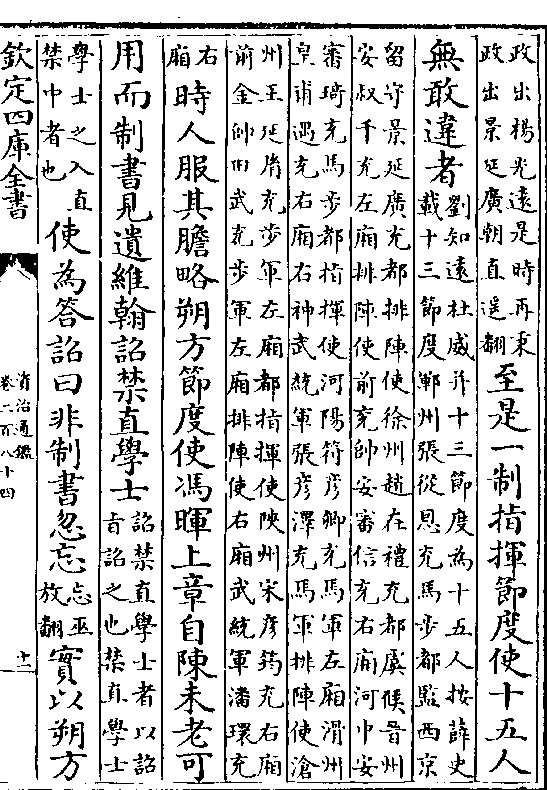 政出楊光遠是時再秉
政出景延廣朝直遥翻
至是一制指揮節度使十五人
無敢違者
劉知遠杜威并十三節度為十五人按薛史
載十三節度鄆州張從恩充馬步都監西京
留守景延廣充都排陣使徐州趙在禮充都虞候晉州
安叔千充左廂排陣使前兗帥安審信充右廂河中安
審琦充馬步都指揮使河陽符彦卿充馬軍左廂滑州
皇甫遇充右廂右神武統軍張彦澤充馬軍排陣使滄
州王廷胤充步軍左廂都指揮使陜州宋彦筠充右廂
前金帥田武充步軍左廂排陣使右廂武統軍潘環充
右
廂
時人服其膽略朔方節度使馮暉上章自陳未老可
用而制書見遺維翰詔禁直學士
詔禁直學士者以詔
旨詔之也禁直學士
學士之入直
禁中者也
使為答詔曰非制書忽忘
忘巫
放翻
實以朔方
欽定四庫全書
資治通鑑
卷二百八十四
十二